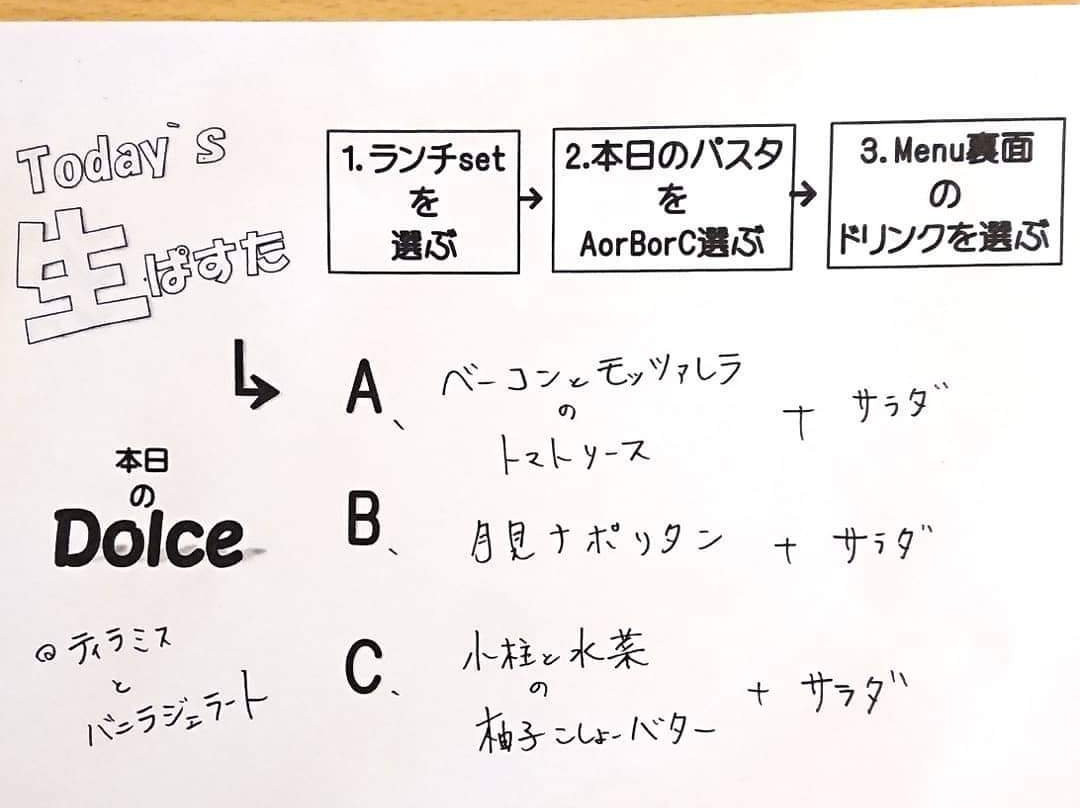 Today's
生ぱすた
1.ランチset
を
選ぶ
→
2.本日のパスタ
を
AorBorC選ぶ
→
3.Menu裏面
の
ドリンクを選ぶ
A、
ベーコンとモッツァレラ
の
トマトソース
+ サラダ
B、
月見ナポリタン + サラダ
C、
小柱と水菜
の
柚子こしょーバター
+ サラダ
本日
の
Dolce
@ティラミス
と
バニラジェラート